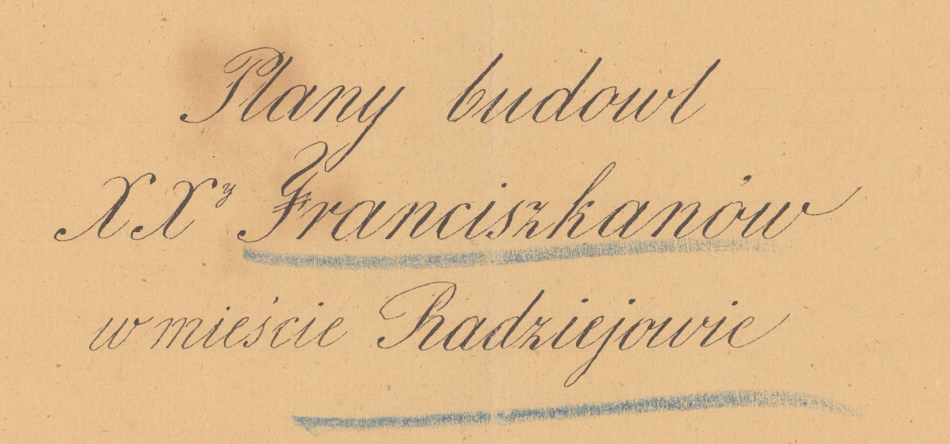 Plany budowl
XXʸ Franciszkanów
w mieście Radziejowie